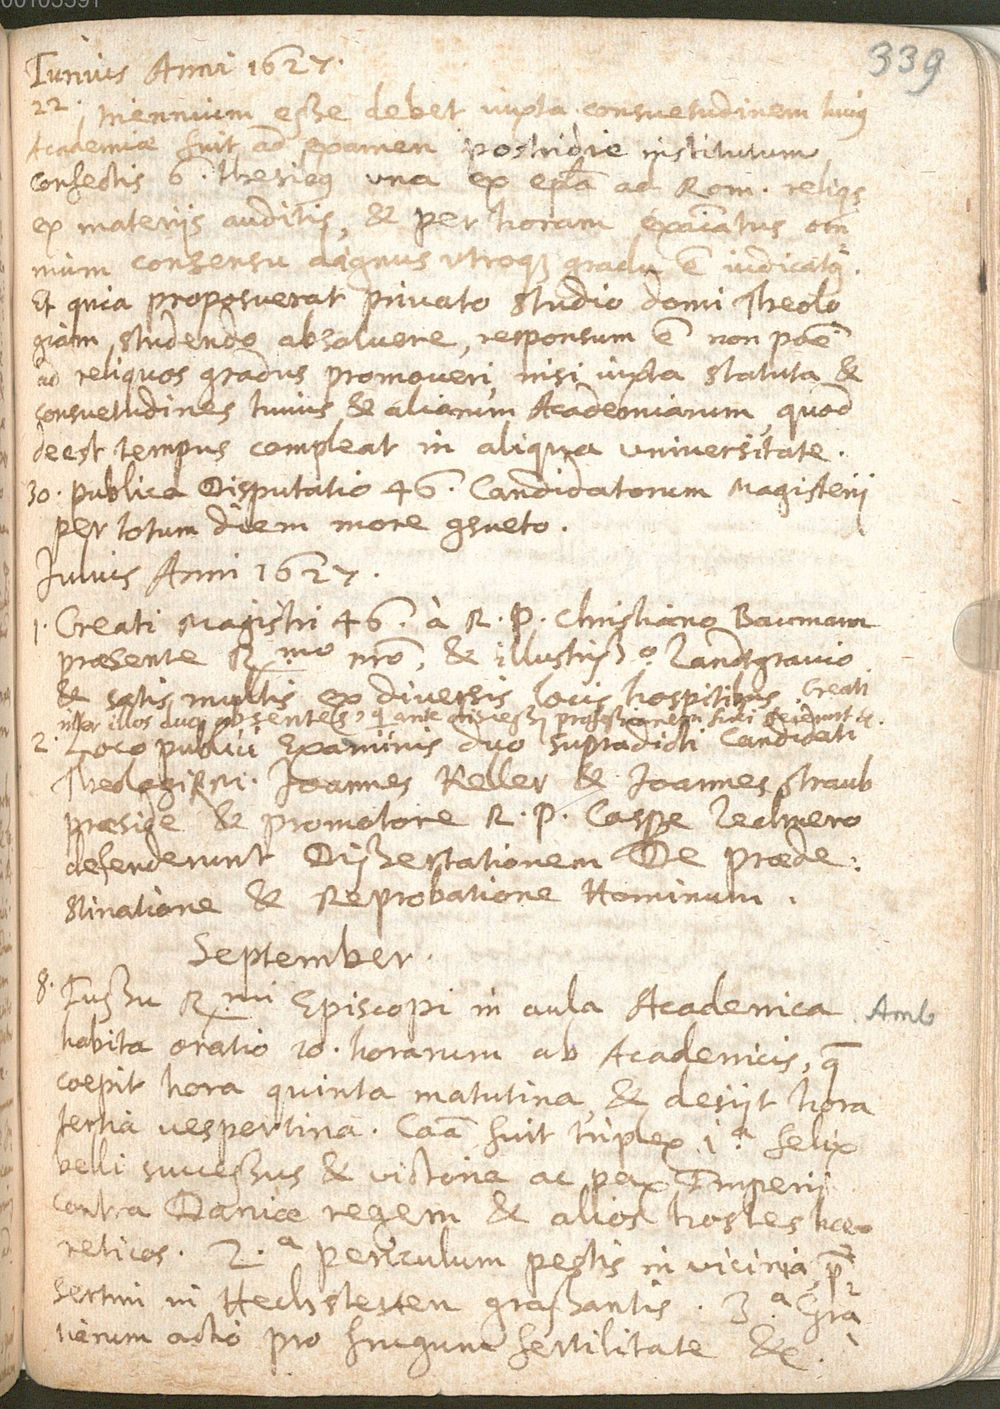 00105591
339
Junius Anni 1627.
22. triennium esse debet iuxta consuetudinem huius
Academiae fuit ad examen postridie institutum,
confectis 6. thesibus una ex epla ad Rom. reliqs
ex materiis auditis, & per horam exaiatus om
nium consensu dignus utroq gradu e iudicatq.
Et quia proposuerat privato studio domi Theolo
giam studendo absolvere, responsum e non poe
ad reliquos gradus promoveri, nisi iuxta statuta &
consuetudines huius & aliarum Academiarum, quod
deest tempus compleat in aliqua universitate.
30. publica Disputatio 46. Candidatorum Magisterii
per totum diem more gsueto.
Julius Anni 1627.
1. Creati Magistri 46. à R. P. Christiano Bauman
praesente R.mo nro, & illustriss.o Landtgravio
& satis multis ex diversis locis hospitibus. Creati
inter illos duo absentes, q ante discessu professionem fidei fecerunt &c.
2. Loco publici Examinis duo supradicti Candidati
Theologi RM. Joannes Keller & Joannes Straub
praeside & promotore R. P. Caspe Lechnero
defenderunt Dissertationem De praede:
stinatione & Reprobatione Hominum.
September.
8. Jussu R.mi Episcopi in aula Academica Amb
habita oratio 10. horarum ab Academicis, q
coepit hora quinta matutina, & desiit hora
tertia vespertina. Caa fuit triplex 1.a felix
belli successus & victoria ac pax Imperii
contra Daniae regem & alios hostes hae-
reticos. 2.a periculum pestis in vicinia, p
sertim in Hechstetten grassantis. 3.a Gra
tiarum actio pro frugum fertilitate &c.